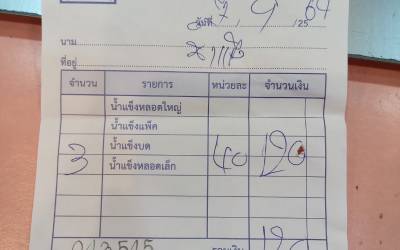 วันที่ 7 / 9 / 2564
นาม
ที่อยู่
จำนวน รายการ หน่วยละ จำนวนเงิน
น้ำแข็งหลอดใหญ่
น้ำแข็งแพ็ค
น้ำแข็งบด
3 น้ำแข็งหลอดเล็ก 40 120
รวมเงิน